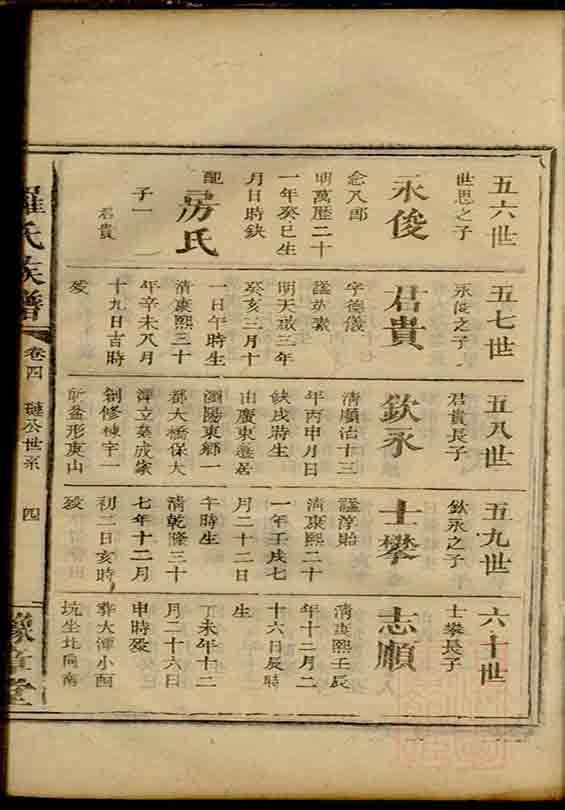 五六世
世思之子
永俊
念八郎
明萬歷二十
一年癸巳生
月日時缺
配
房氏
子一
君貴
五七世
永俊之子
君貴
字德儀
諡英素
明天啟三年
癸亥三月十
一日午時生
清康熙三十
年辛未八月
十九日吉時
歿
五八世
君貴長子
欽永
清順治十三
年丙申月日
缺戌時生
由廣東遷居
瀏陽東鄉一
都大橋保大
潭立業成家
創修棟宇一
所盆形東山
五九世
欽永之子
士攀
諡淳貽
清康熙二十
一年壬戌七
月二十二日
午時生
清乾隆三十
七年十二月
初二日亥時
歿
六十世
士攀長子
志順
清康熙壬辰
年十二月二
十六日辰時
生
丁未年十二
月二十六日
申時歿
葬大潭小
坑坐北向南
羅氏族譜
卷四
璉公世系
四
豫章堂